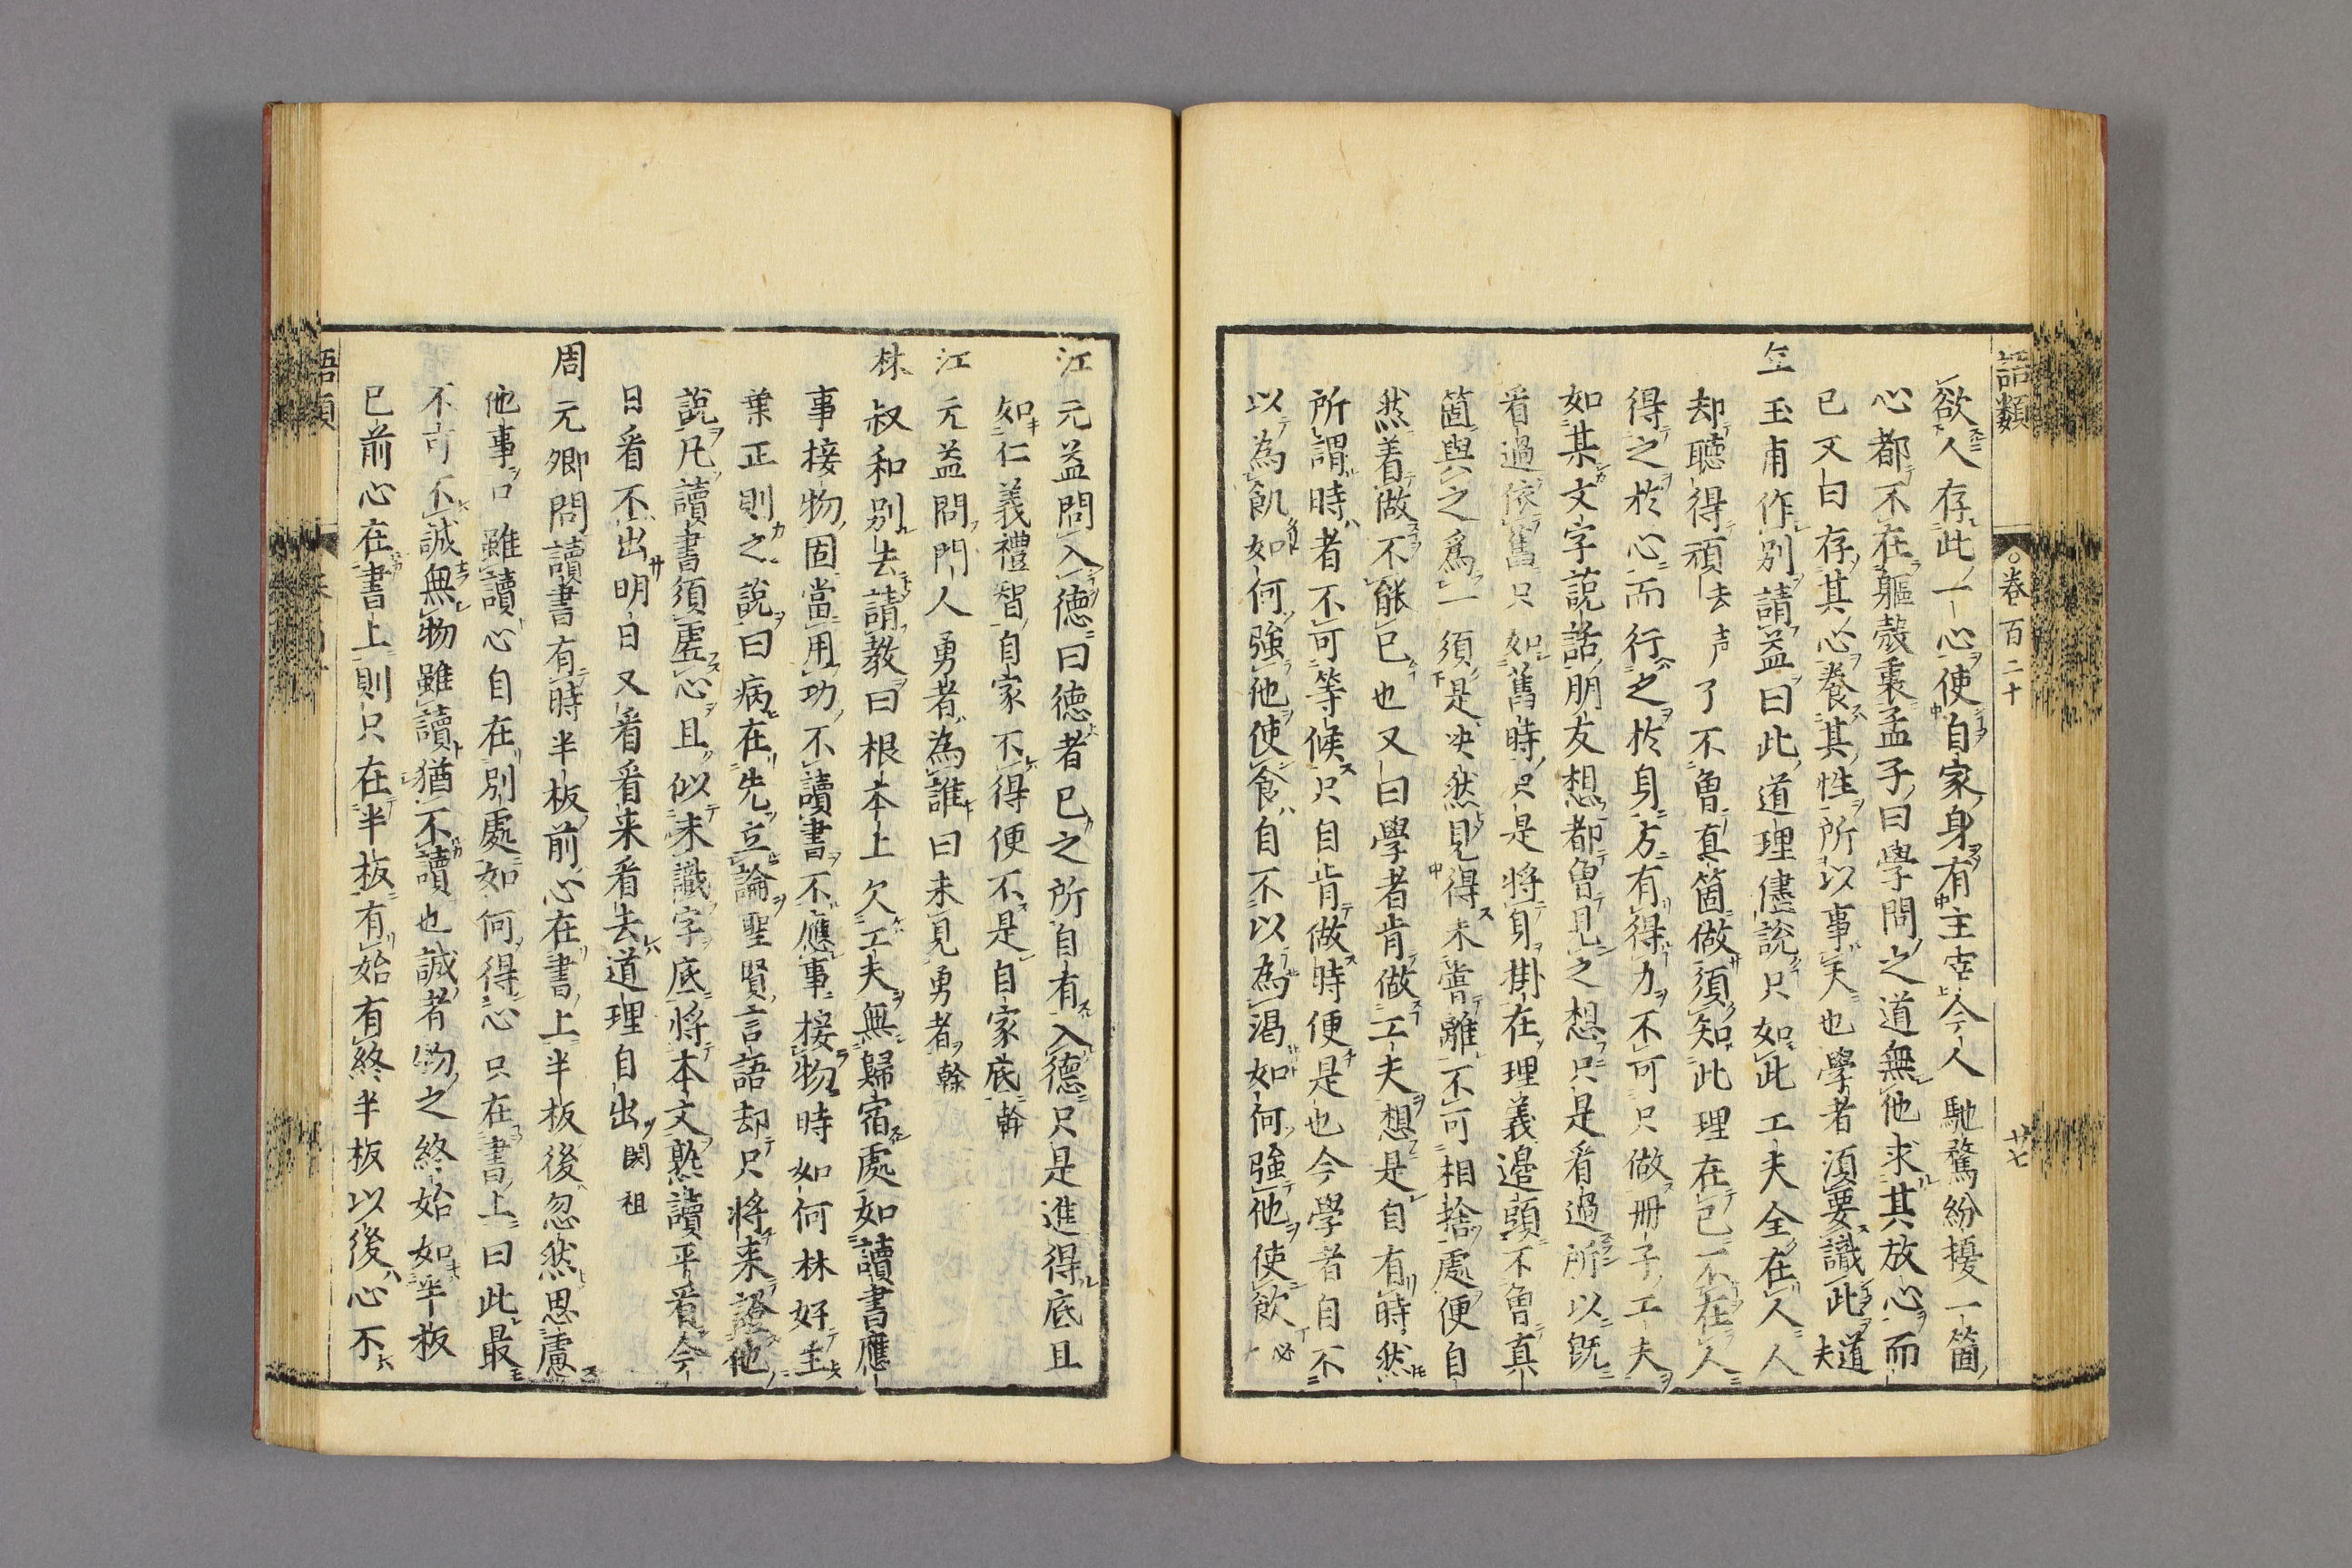 語類 卷百二十 廿七
欲人存此一心使自家身有主宰今人馳騖紛擾一箇
心都不在軀殻裏孟子曰學問之道無他求其放心而
已又曰存其心養其性所以事天也學者須要識此道夫
㱏玉甫作別請益曰此道理儘說只如此工夫全在人人
却聽得頑去声了不曾真箇做須知此理在已不在人
得之於心而行之於身方有得力不可只做冊子工夫
如某文字說話朋友想都曾見之想只是看過所以既
看過依舊只如舊時只是將身掛在理義邊頭不曾真
箇與之爲一須是决然見得未嘗離不可相捨處便自
然着做不能已也又曰學者肯做工夫想是自有時然
所謂時者不可等候只自肯做時便是也今學者自不
以為飢如何強他使食自不以為渴如何強他使飲必大
江元益問入德曰德者已之所自有入德只是進得底且
如仁義禮智自家不得便不是自家底榦
江元益問門人勇者為誰曰未見勇者榦
林叔和別去請教曰根本上欠工夫無歸宿處如讀書應
事接物固當用功不讀書不應事接物時如何林好主
葉正則之說曰病在先立論聖賢言語却只将来證他
說凡讀書須虛心且似未識字底将本文熟讀平看今
日看不出明日又看看来看去道理自出閎祖
周元卿問讀書有時半板前心在書上半板後忽然思慮
他事口雖讀心自在別處如何得心只在書上曰此最
不可不誠無物雖讀猶不讀也誠者物之終始如半板
已前心在書上則只在半板有始有終半板以後心不
語類